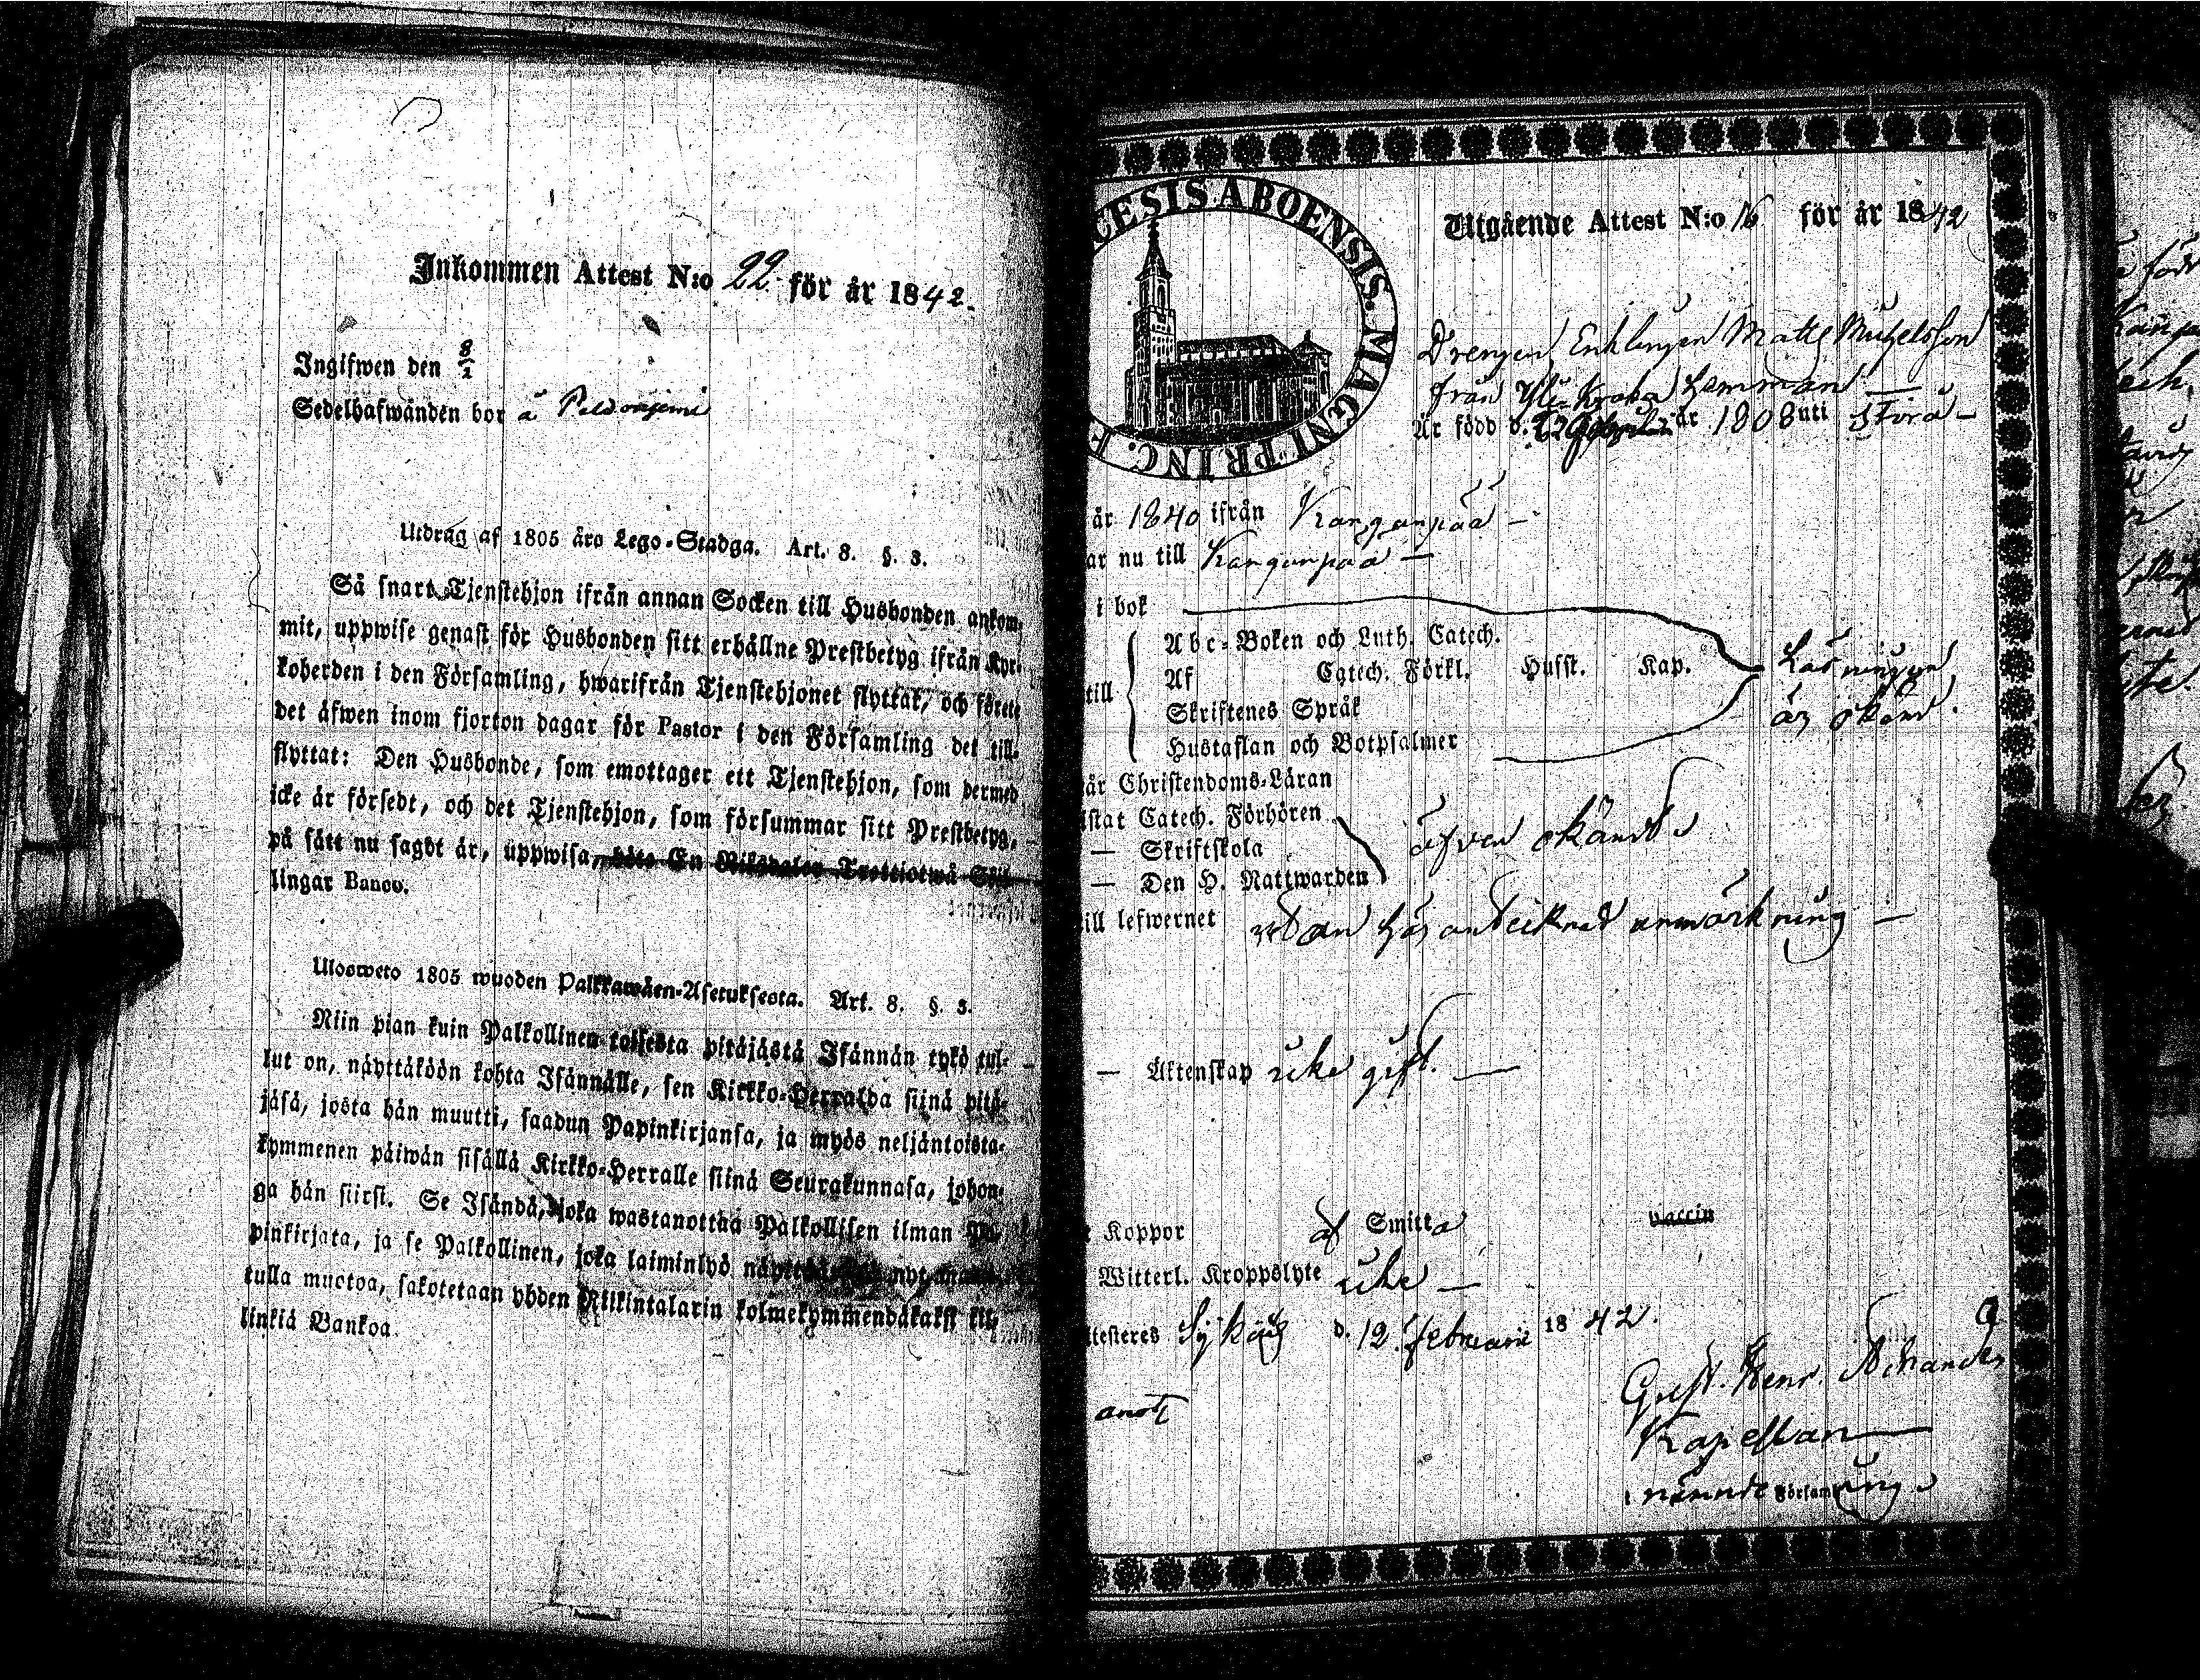 Inkommen Attest N:o 22 för år 1842.
Ingifwen den 8/2
Sedelhafwanden bor å
Utdrag af 1805 års Lego-Stadga. Art. 8. §. 3.
Så snart Tjenstehjon ifrån annan Socken till Husbonden ankom-
mit, uppwise genast för Husbonden sitt erhållne Prestbetyg ifrån Kyr-
koherden i den Församling, hwarifrån Tjenstehjonet flyttat, och förete
det äfwen inom fjorton dagar för Pastor i den Församling det till-
flyttat: Den Husbonde, som emottager ett Tjenstehjon, som dermed
icke är försedt, och det Tjenstehjon, som försummar sitt Prestbetyg,
på sätt nu sagdt är, uppwisa, böte En Riksdaler Trettiotwå Skil-
lingar Banco.
Ulosweto 1805 wuoden Palkkawäen-Asetuksesta. Art. 8. §. 3.
Niin pian kuin Palkollinen toisesta pitäjästä Isännän tykö tul-
lut on, näyttäköön kohta Isännälle, sen Kirkko-Herralda siinä pitä-
jäsä, josta hän muutti, saadun Papinkirjansa, ja myös neljäntoista-
kymmenen päiwän sisällä Kirkko-Herralle siinä Seurakunnasa, johon-
ga hän siirsi. Se Isändä, joka wastanottaa Palkollisen ilman Pa-
pinkirjata, ja se Palkollinen, joka laiminlyö
tulla muotoa, sakotetaan yhden Riikintalarin kolmekymmendäkaksi kil-
linkiä Bankoa.
CESIS ABOENSIS. MAGNI PRINC. F
Utgående Attest N:o 16 för år 1842
Drengen Enklingen Matts Michelsson
från Yli
Är född d. år 1808 uti Storå
år 1840 ifrån Kanganpää
ar nu till Kanganpää
i bok
till
Abc-Boken och Luth. Catech.
Af Catech. Förkl. Husst. Kap.
Skriftenes Språk
Hustaflan och Botpsalmer
Läsningen
är okänd.
år Christendoms-Läran
istat Catech. Förhören
— Skriftskola
— Den H. Nattwarden
äfven okändt
till lefwernet utan här antecknad anmärkning
— Äktenskap icke gift.
Koppor af Smitta vaccin
Witterl. Kroppslyte icke
ttesteres d. 12 februarii 1842.
Gust. Henr.
Kapellan
i nämnde Församling